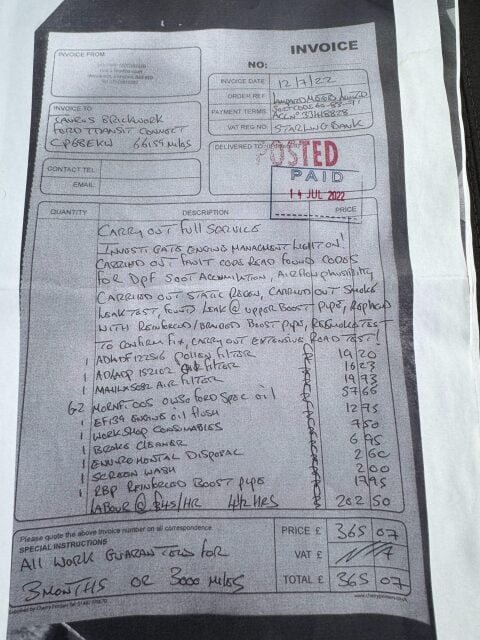 INVOICE
INVOICE FROM
NO:
INVOICE DATE 12/7/22
ORDER REF.
PAYMENT TERMS
VAT REG NO. STARLING BANK
INVOICE TO
BRICKWORK
FORD TRANSIT CONNECT
66159 MILES
CONTACT TEL
EMAIL
DELIVERED TO
POSTED
PAID
14 JUL 2022
QUANTITY DESCRIPTION PRICE
CARRY OUT FULL SERVICE
INVESTIGATE ENGINE MANAGMENT LIGHT ON!
CARRIED OUT FAULT CODE READ FOUND CODES
FOR DPF SOOT ACCUMILATION, AIRFLOW PLAUSIBILITY
CARRIED OUT STATIC REGEN, CARRIED OUT SMOKE
LEAK TEST, FOUND LEAK @ UPPER BOOST PIPE, REPLACED
WITH REINFORCED/ BOOST PIPE, RESMOKE TEST
TO CONFIRM FIX, CARRY OUT EXTENSIVE ROAD TEST!
1 POLLEN FILTER 19 20
1 OIL FILTER 16 23
1 AIR FILTER 19 73
6.2 0W30 FORD SPEC OIL 57 66
1 ENGINE OIL FLUSH 12 75
1 WORKSHOP CONSUMABLES 7 50
1 BRAKE CLEANER 6 95
1 ENVIROMENTAL DISPOSAL 2 60
1 SCREEN WASH 2 00
1 RBP REINFORCED BOOST PIPE 17 95
LABOUR @ £45/HR 4 1/2 HRS 202 50
Please quote the above Invoice number on all correspondence
SPECIAL INSTRUCTIONS
ALL WORK GUARANTEED FOR
3 MONTHS OR 3000 MILES
PRICE £ 365 07
VAT £
TOTAL £ 365 07